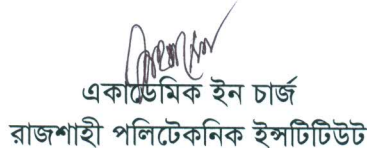 একাডেমিক ইন চার্জ
রাজশাহী পলিটেকনিক ইন্সটিটিউট